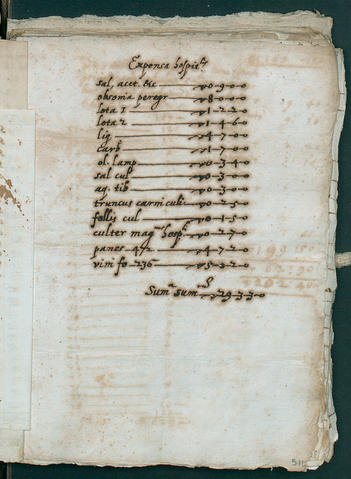 Expensa hospit.
sal, acet. etc 0-9-0-0
obsonia peregr 8-0-0-0
lota 1 1-2-2-0
lota 2 1-4-6-0
lig 4-7-0-0
carb 1-7-0-0
ol. lamp 0-3-4-0
sal cul 0-3-0-0
aq. tib 0-3-0-0
truncus carni culi 0-2-5-0
follis cul 0-1-5-0
culter mag hosp 0-2-7-0
panes 472 4-7-2-0
vini fo 236 5-3-2-0
Sum sum 29-3-3-0